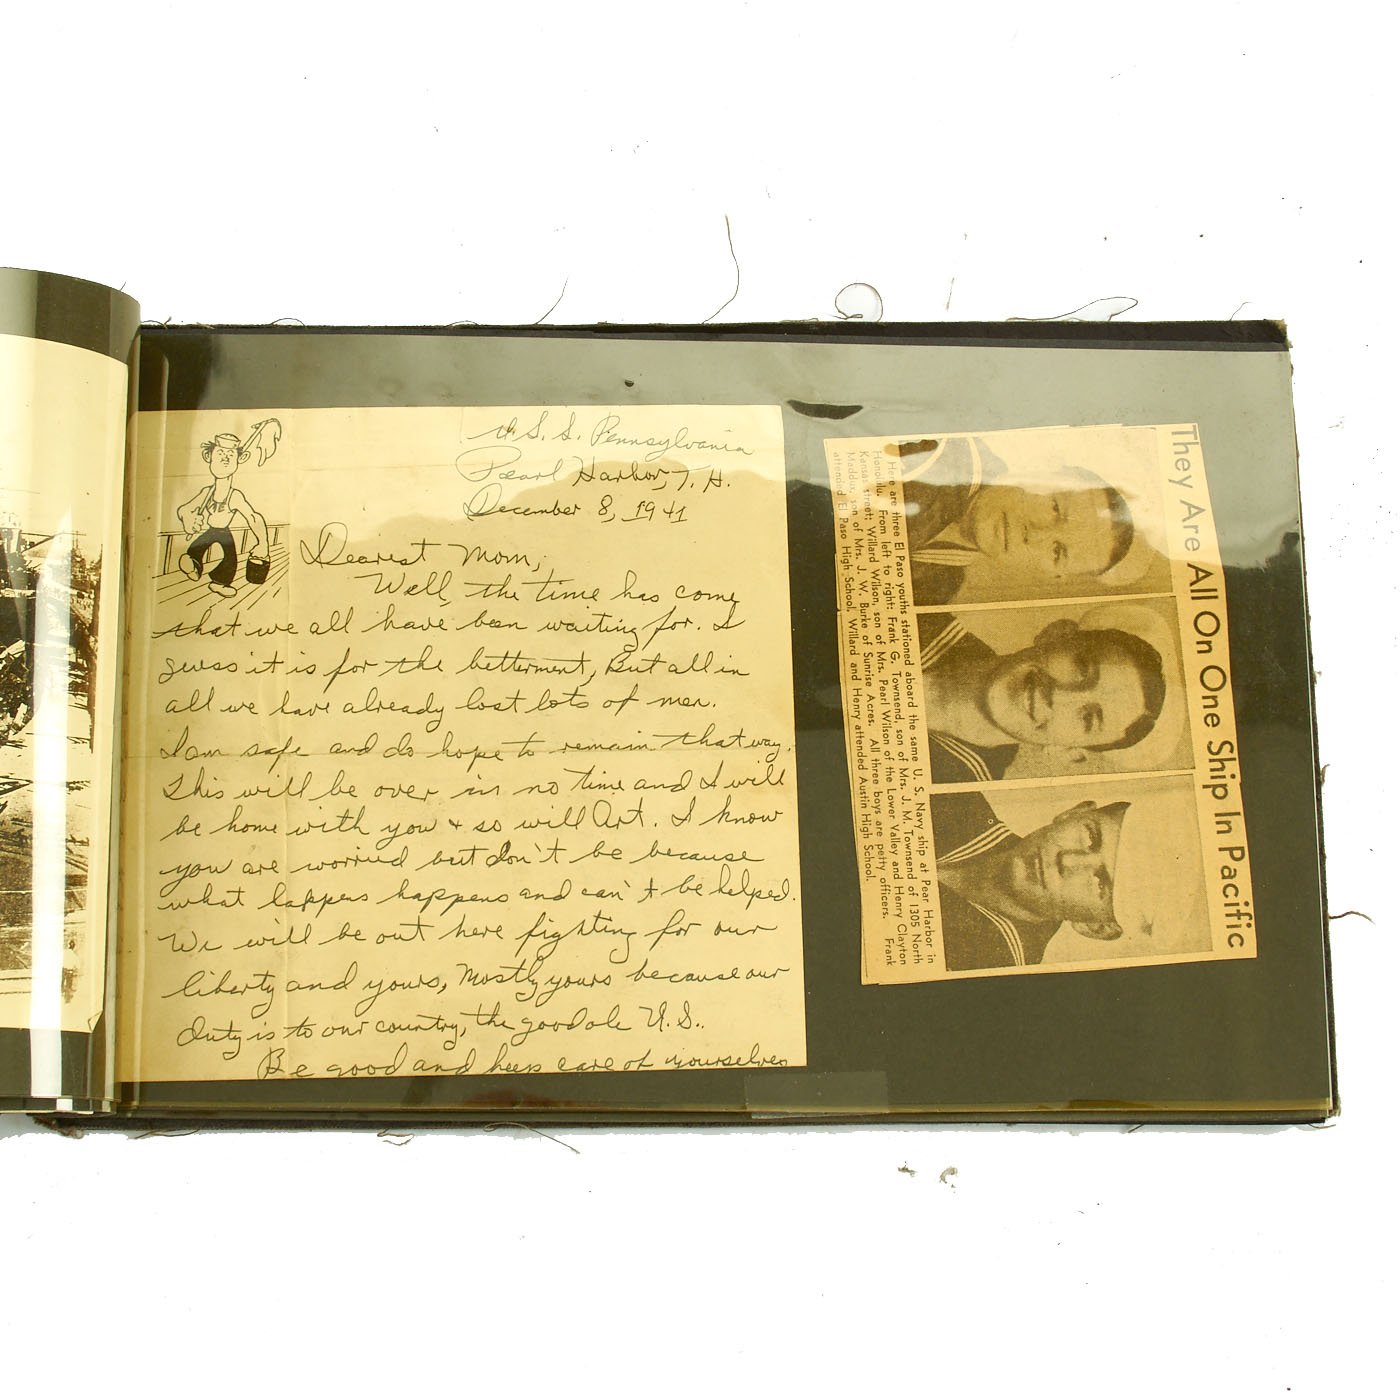 U.S.S. Pennsylvania
Pearl Harbor, T.H.
December 8, 1941
Dearest Mom,
Well, the time has come
that we all have been waiting for. I
guess it is for the betterment, But all in
all we have already lost lots of men.
I am safe and do hope to remain that way.
This will be over in no time and I will
be home with you + so will Art. I know
you are worried but don't be because
what happens happens and can't be helped.
We will be out here fighting for our
liberty and yours, Mostly yours because our
duty is to our country, the good ole U.S..
Be good and keep care of yourselves
They Are All On One Ship In Pacific
Here are three El Paso youths stationed aboard the same U. S. Navy ship at Pear Harbor in
Honolulu. From left to right: Frank G. Townsend, son of Mrs. J. M. Townsend of 1305 North
Kansas street; Willard Wilson, son of Mrs. Pearl Wilson of the Lower Valley and Henry Clayton
Maddux, son of Mrs. J. W. Burke of Sunrise Acres. All three boys are petty officers. Frank
attended El Paso High School. Willard and Henry attended Austin High School.